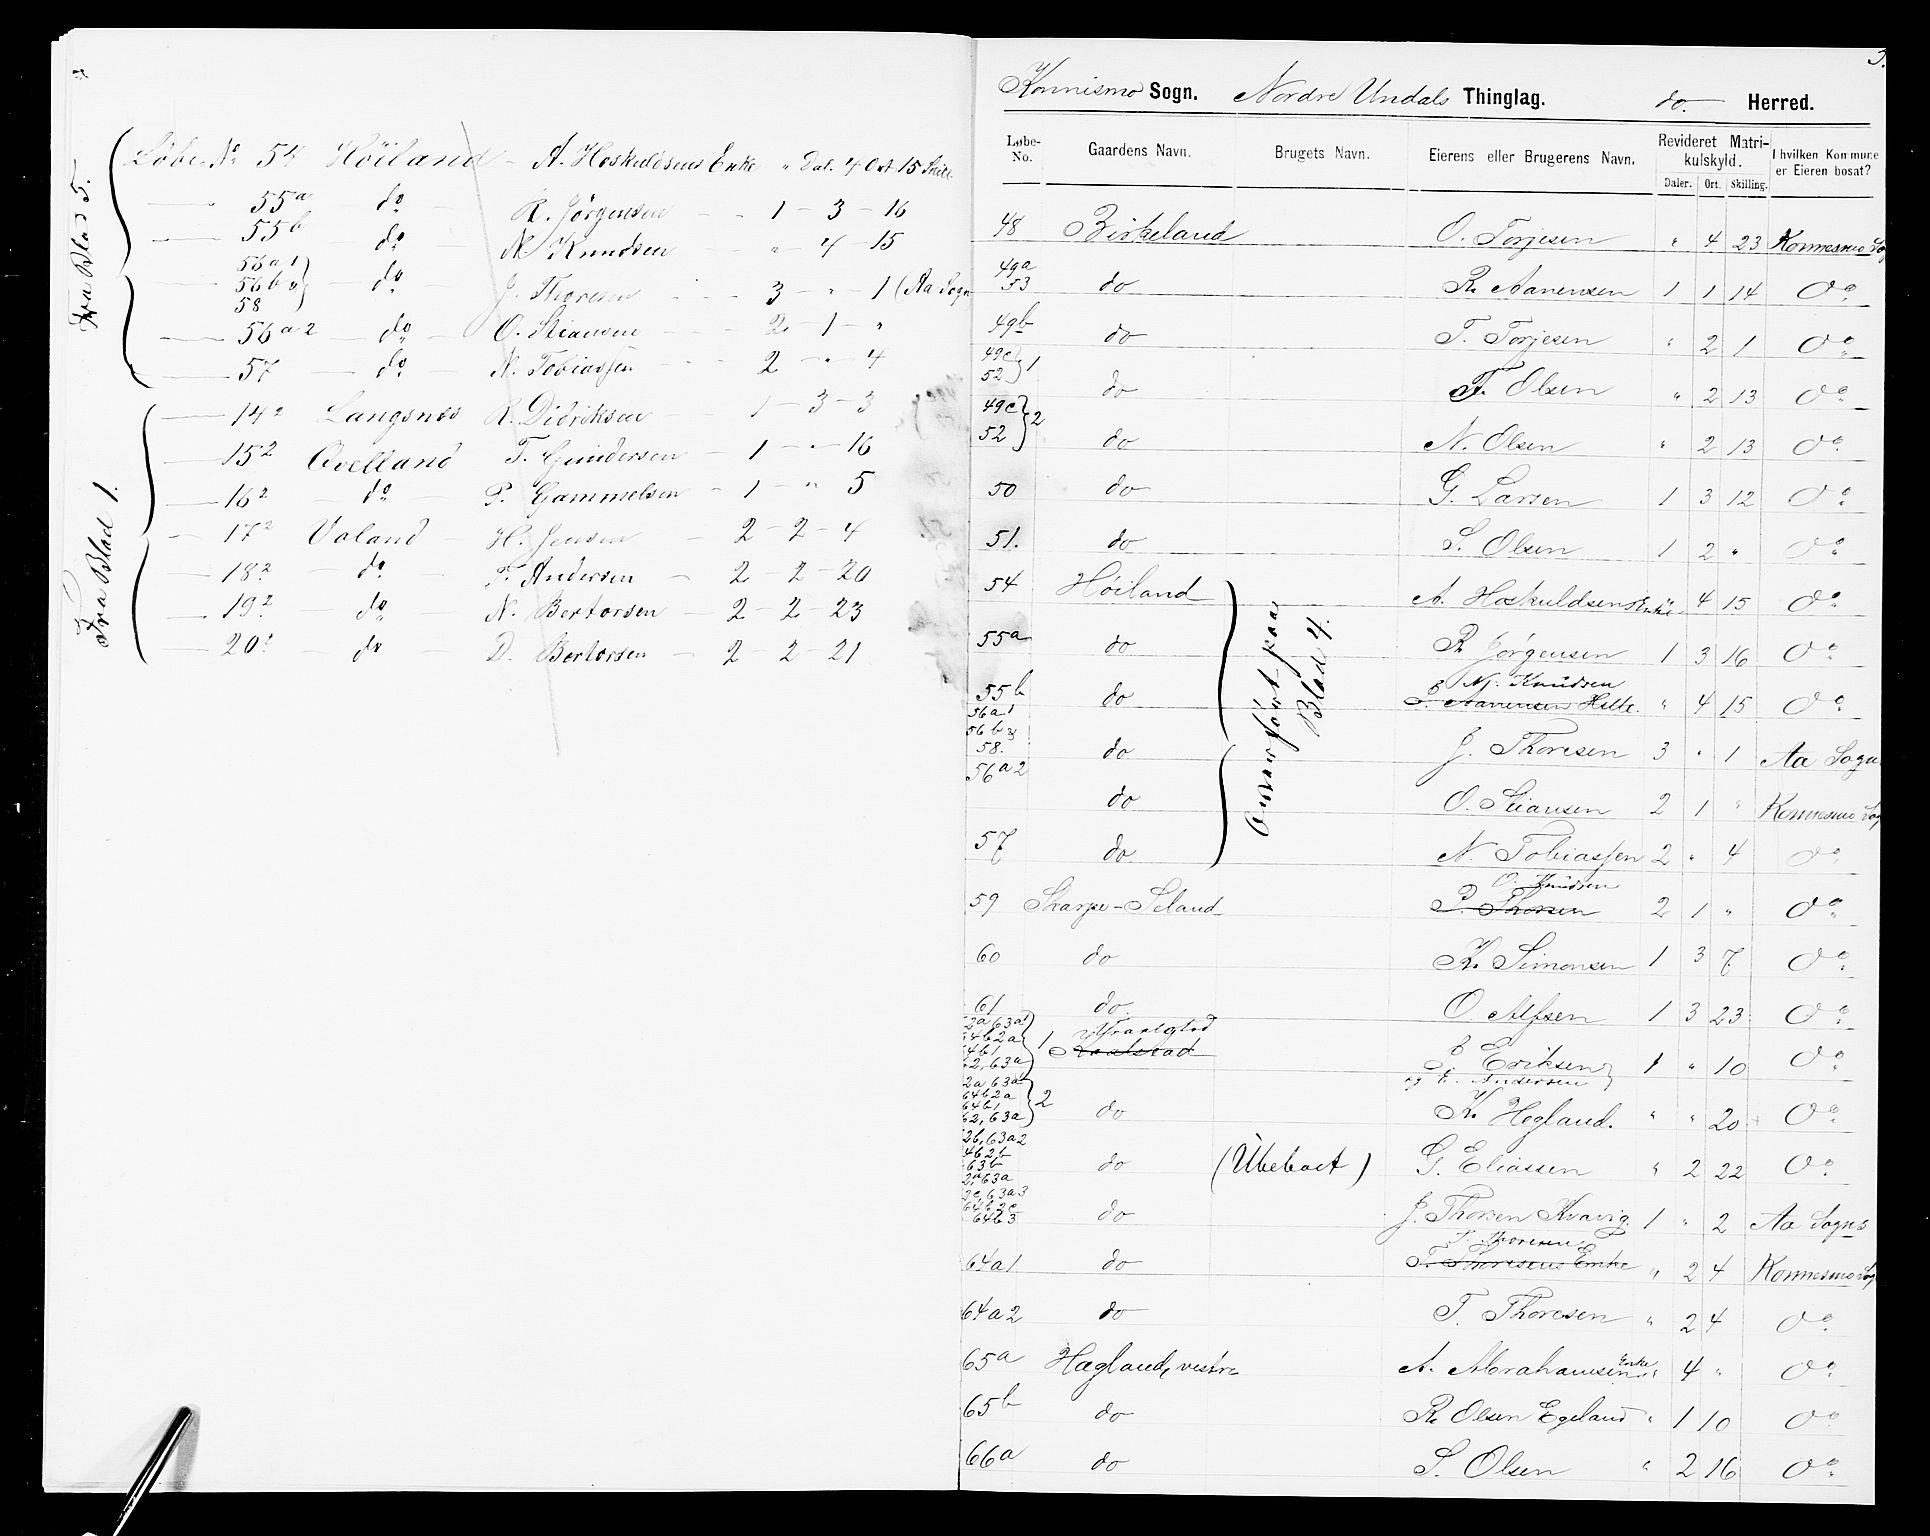 Løbe No 54 Höiland - A. Hoskuldsens Enke " Dal. 4 Ort 15 Skill.
55a do R. Jörgensen - 1 - 3 - 16
55b do N. Knudsen " - 4 - 15
56a1
56b &
58
do J. Thoresen 3 - " - 1 (Aa Sogn
56a2 do O. Stiansen 2 - 1 - "
57 do N. Tobiassen 2 - " - 4
Fra Blad 5.
14 2 Langsnes R. Didriksen 1 - 3 - 3
15 2 Qvelland T. Gundersen - 1 - " - 16
16 2 do P. Gammelsen - 1 - " 5
17 2 Valand H. Jensen - 2 - 2 - 4
18 2 do T. Andersen - 2 - 2 - 20
19 2 do N. Bertorsen - 2 - 2 - 23
20 2 do D. Bertorsen - 2 - 2 - 21
Fra Blad 1.
3.
Konnismo Sogn. Nordre Undals Thinglag. do. Herred.
Løbe-No. Gaardens Navn. Brugets Navn. Eierens eller Brugerens Navn. Revideret Matrikulskyld. I hvilken Kommune er Eieren bosat?
Daler. Ort. Skilling.
48 Birkeland O. Torjesen " 4 23 Konnesmo Sog
49a
53 do R. Aanensen 1 1 14 Do
49b do T. Torjesen " 2 1 Do
49c
52 } 1 do T. Olsen " 2 13 Do
49c
52 } 2 do N. Olsen " 2 13 Do
50 do G. Larsen 1 3 12 Do
51. do S. Olsen 1 2 " Do
54 Höiland A. Hoskuldsens Enke " 4 15 Do
55a do R. Jörgensen 1 3 16 Do
N. Knudsen
55b do Aanensen Helle. " 4 15 Do
56a1
56b &
58. do J. Thoresen 3 " 1 Aa Sogn
56a2 do O. Stiansen 2 1 " Konnesmo Sog
57 do N. Tobiassen 2 " 4 Do
Overført paa
Blad 4.
O. Knudsen
59 Skarpe-Seland P. Thorsen 2 1 " Do
60 do K. Simonsen 1 3 7 Do
61 do O. Alfsen 1 3 23 Do
2a 63a1
64b2a
64b1
62, 63a } 1 Eriksen 1 " 10 Do
og E. Andersen
2a 63a
64b2a
64b1
62, 63a } 2 do K. Hegland. " " 20 Do
2b, 63a2
4b2b
63b
2, 63a do (Ubeboet) G. Eliassen " 2 22 Do
2c, 63a3
64b2c
64b3 do J. Thorsen Kvavig. 1 " 2 Aa Sogns
Thoresen
64a1 do T. Thoresens Enke " 2 4 Konnesmo Sog
64a2 do T. Thoresen " 2 4 Do
65a Hægland, vestre A. Abrahamsens Enke " 4 " Do
65b do R. Olsen Egeland " 1 10 Do
66a do S. Olsen " 2 16 Do